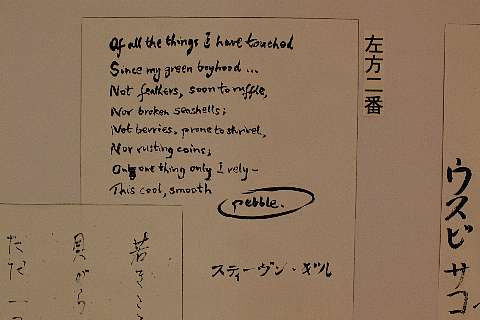 Of all the things I have touched
Since my green boyhood ...
Not feathers, soon to ruffle,
Nor broken seashells;
Not berries, prone to shrivel,
Nor rusting coins;
Only one thing only I rely –
This cool, smooth
pebble.
スティーヴン・ギル
左方二番
ウスビ サコ
若きこ
貝がら
ただ一つ